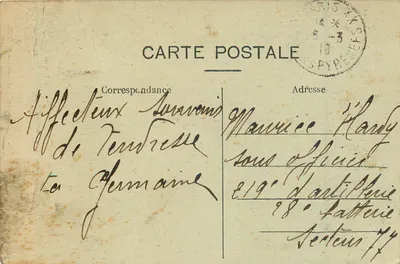 CARTE POSTALE
Correspondance
Affectueux souvenir
de Tendresse
ta Germaine
Adresse
Maurice Hardy
sous officier
219e d'artillerie
28e batterie
secteur 77
6 -3
18